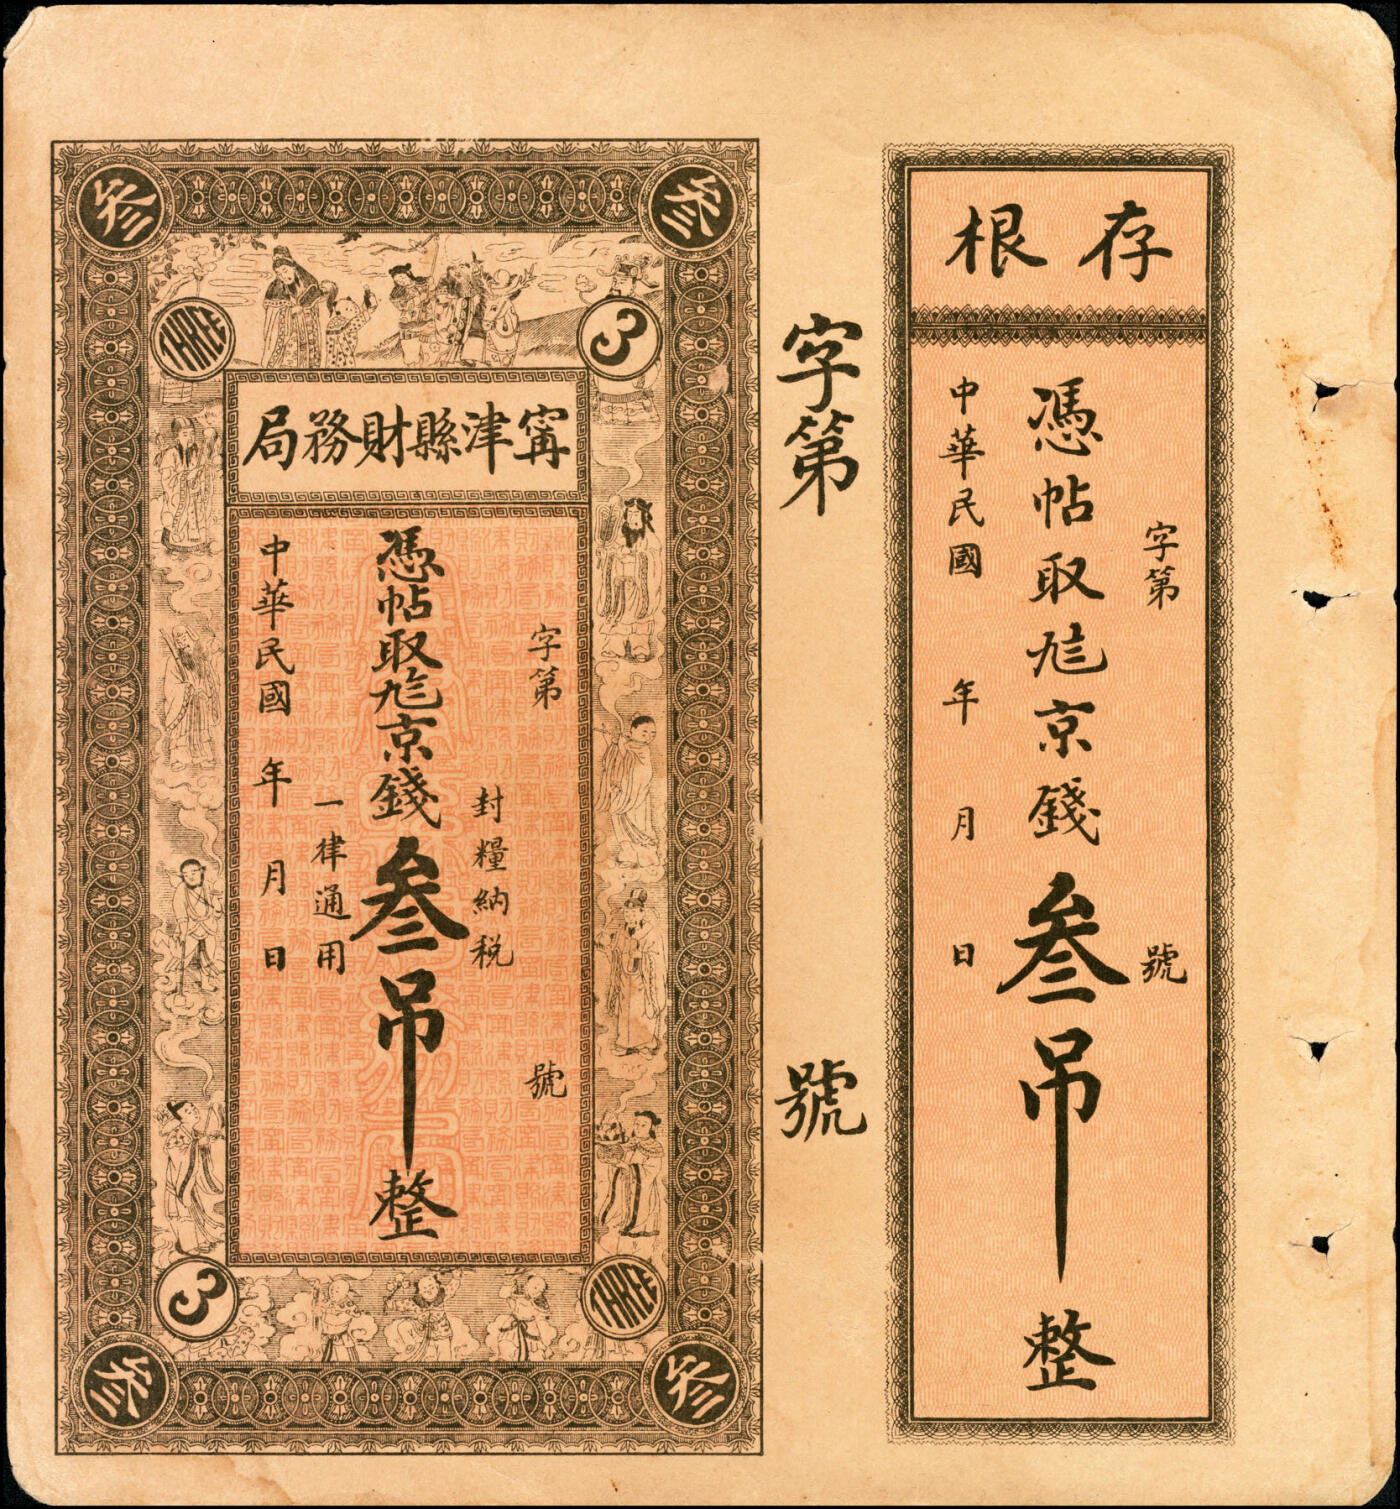 存根
字第 號
憑帖取 京錢叁吊整
中華民國 年 月 日
字第 號
叄 叄
THREE 3
甯津縣財務局
字第 號
封糧納税
憑帖取 京錢叁吊整
一律通用
中華民國 年 月 日
3 THREE
叄 叄